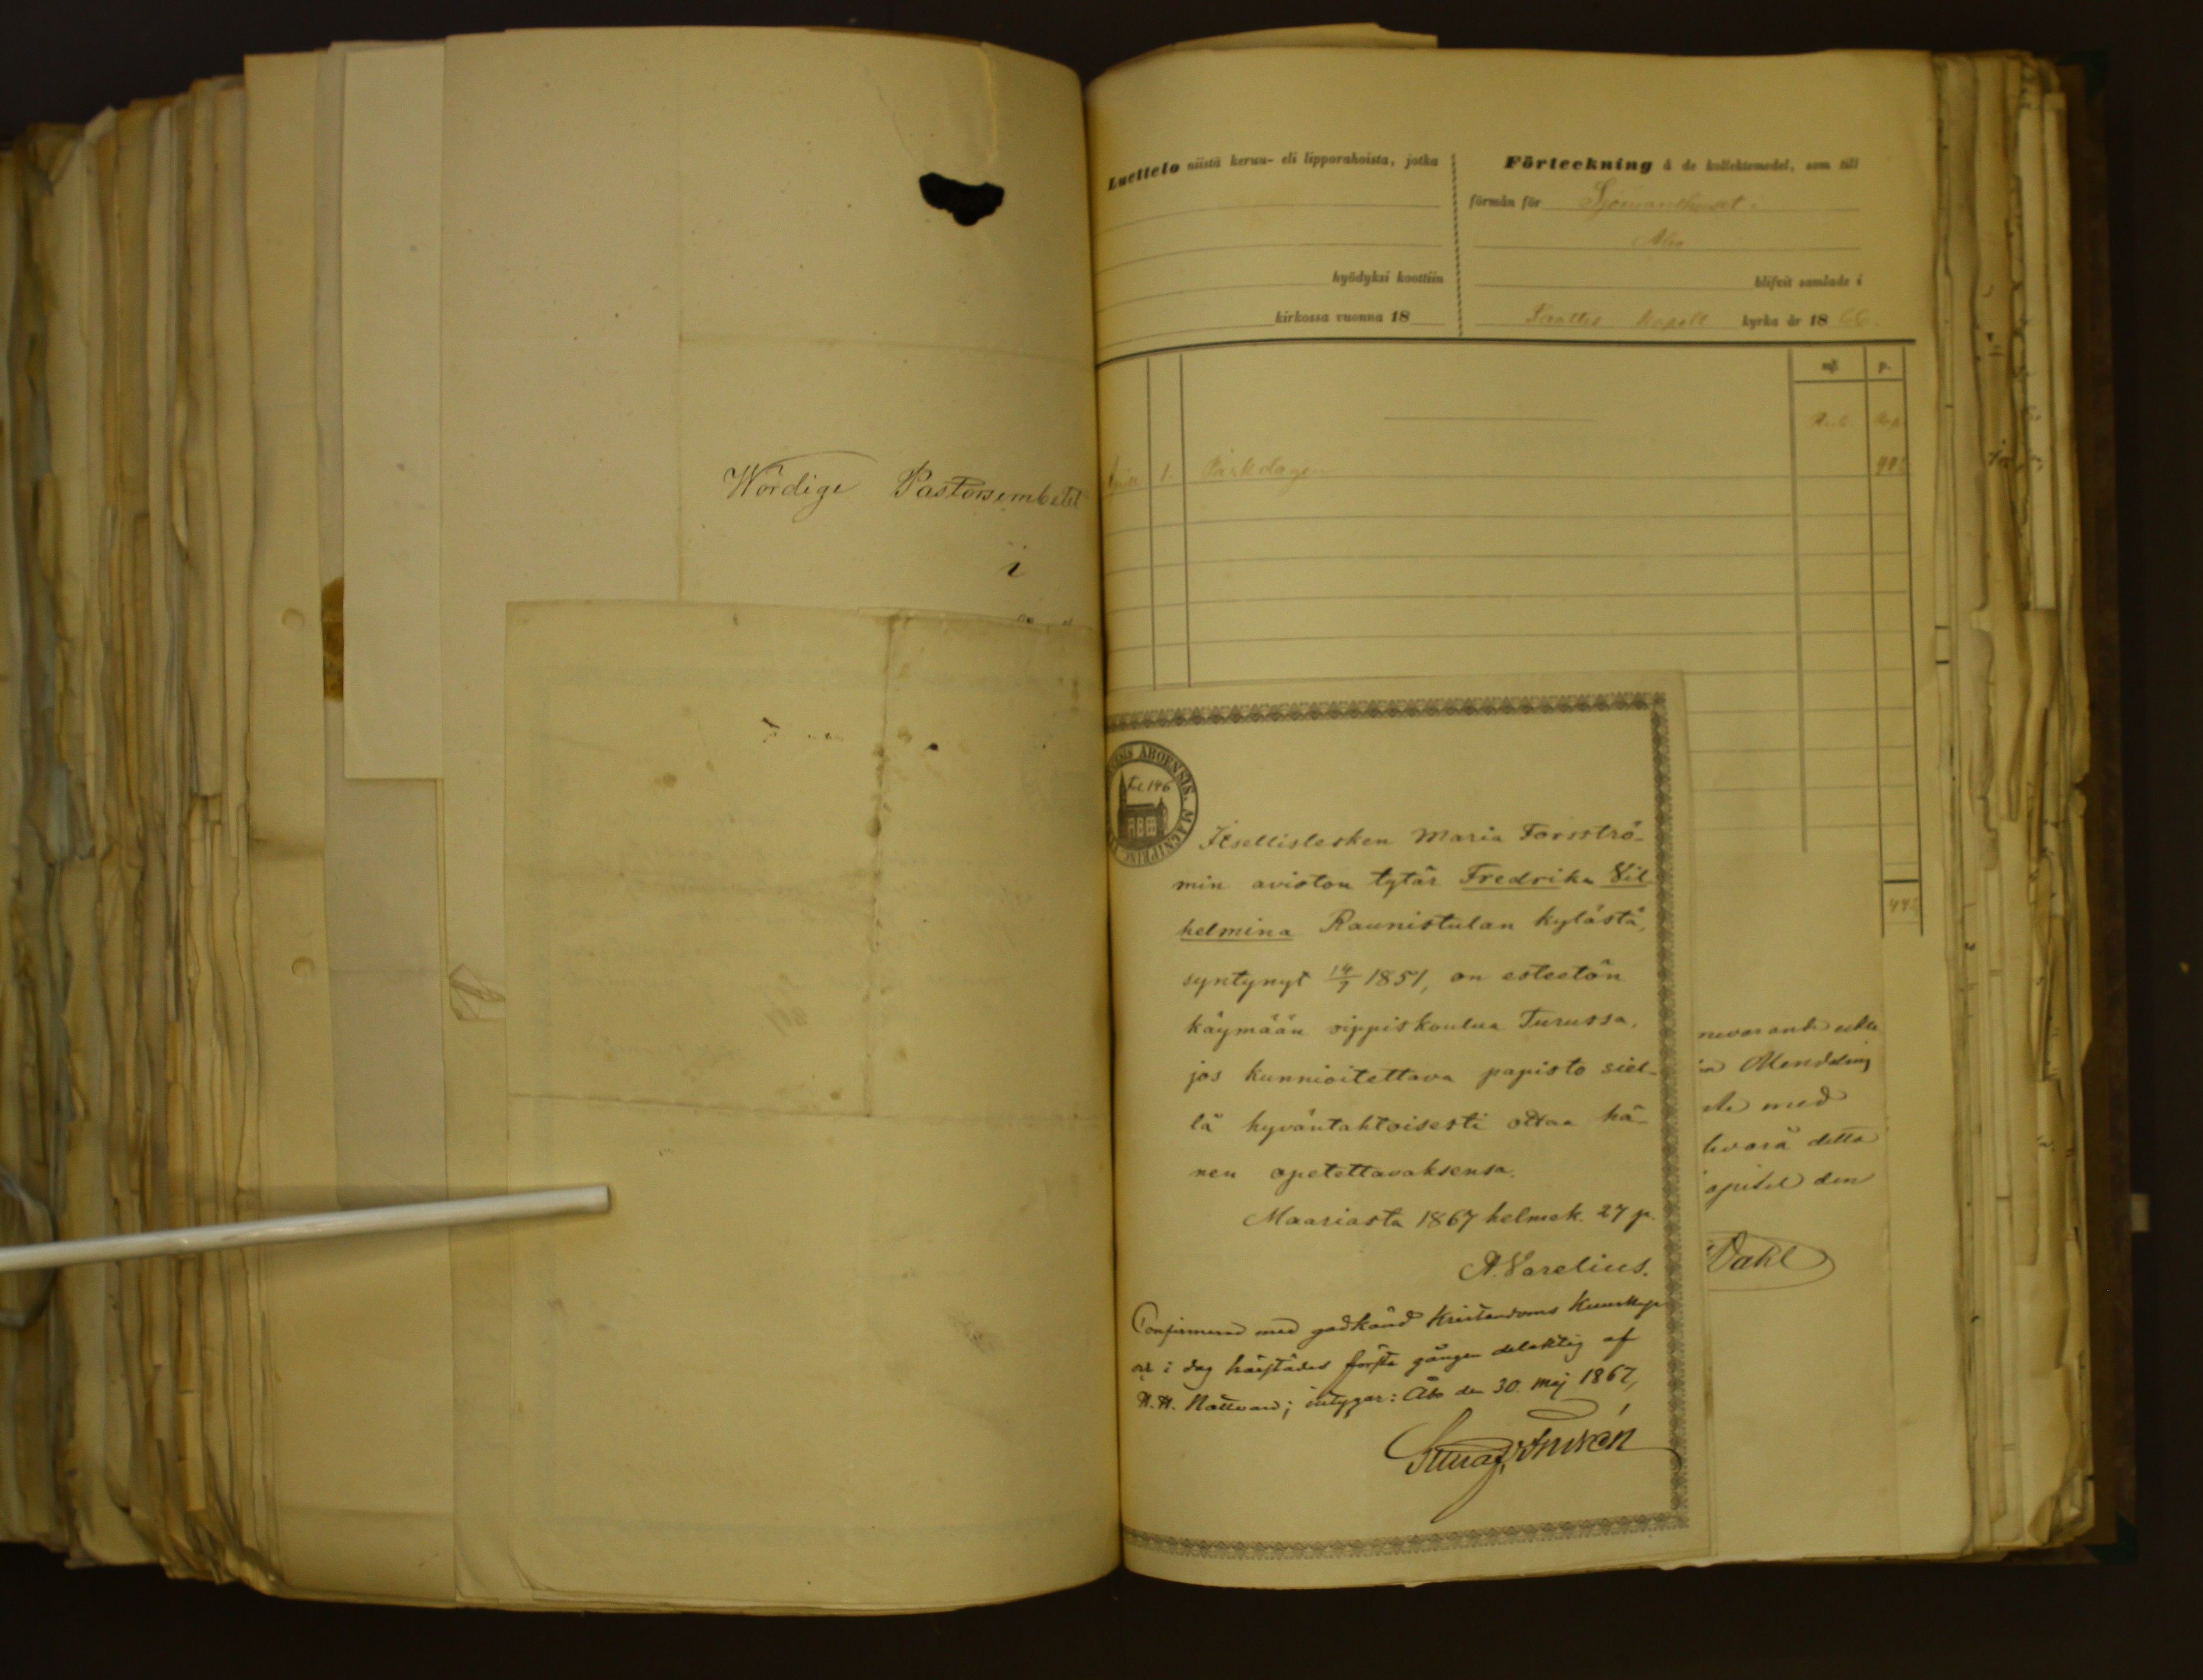 Wördige Pastorsembetet
i
Luettelo niistä keruu- eli lipporahoista, jotka
hyödyksi koottiin
kirkossa vuonna 18
Förteckning å de kollektemedel, som till
förmån för Sjömanshuset i
Åbo
blifvit samlade i
Santtis kapell kyrka år 1866.
mk p.
Rub. Kop.
April 1. Påskdagen
ABOENSIS. MAGNI PRINC
fol. 146
Itsellislesken Maria Forsströ-
min avioton tytär Fredrika Vil-
helmina Raunistulan kylästä,
syntynyt 14/7 1851, on esteetön
käymään rippiskoulua Turussa,
jos kunnioitettava papisto siel-
lä hyväntahtoisesti ottaa hä-
nen opetettavaksensa.
Maariasta 1867 helmek. 27 p.
A. Varelius.
Confirmerad med godkänd Kristendoms Kunskap
och i dag härstädes första gången delaktig af
H. H. Nattvard; intygar: Åbo den 30. Maj 1867,
Mendeling
med
detta
den
Dahl